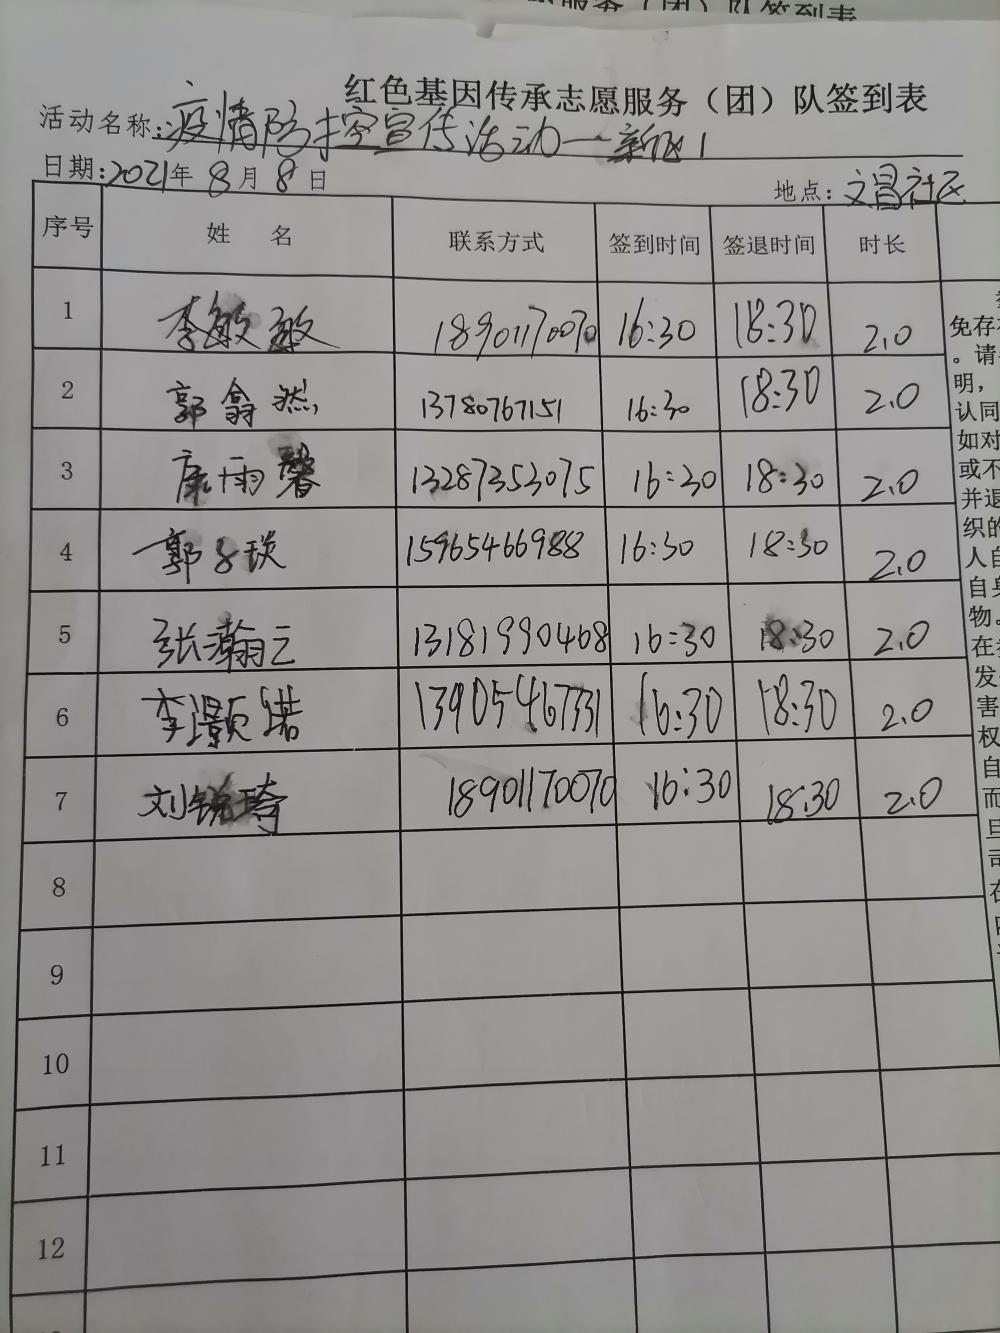 红色基因传承志愿服务（团）队签到表
活动名称：疫情防控宣传活动—新区1
日期：2021年8月8日 地点：文昌社区
序号 姓名 联系方式 签到时间 签退时间 时长
1 李敏敏 18901170070 16:30 18:30 2.0
2 郭翕然 13780767151 16:30 18:30 2.0
3 康雨馨 13287353075 16:30 18:30 2.0
4 郭子琰 15965466988 16:30 18:30 2.0
5 张瀚云 13181990468 16:30 18:30 2.0
6 李灏诺 13905467331 16:30 18:30 2.0
7 刘锐琦 18901170070 16:30 18:30 2.0
8
9
10
11
12
免存
。请
明，
认同
如对
或不
并退
织的
人自
自身
物。
在
发
害
权
自
而
且
司
在